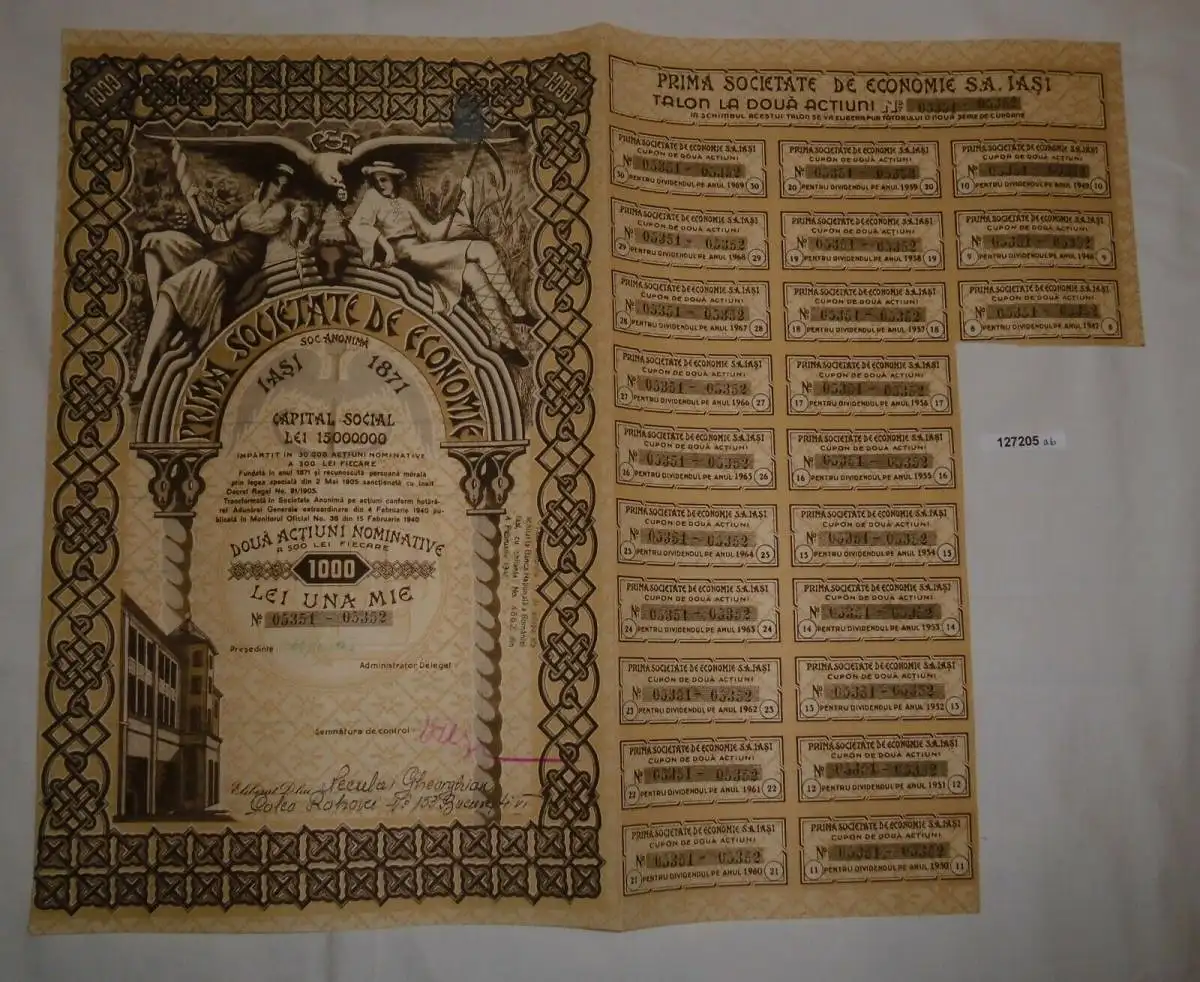 1000
1000
PSE
PRIMA SOCIETATE DE ECONOMIE
SOC. ANONIMĂ
IAȘI 1871
CAPITAL SOCIAL
LEI 15000000
IMPĂRȚIT IN 30.000 ACȚIUNI NOMINATIVE
A 500 LEI FIECARE
Fundată în anul 1871 și recunoscută persoană morală
prin legea specială din 2 Mai 1905 sancționată cu înalt
Decret Regal No. 91/1905.
Transformată în Societate Anonimă pe acțiuni conform hotărâ-
rei Adunărei Generale extraordinare din 4 Februarie 1940 pu-
blicată în Monitorul Oficial No. 38 din 15 Februarie 1940
DOUĂ ACȚIUNI NOMINATIVE
A 500 LEI FIECARE
1000
LEI UNA MIE
No 05351 - 05352
Președinte
Administrator Delegat
Semnătura de control
Banca Națională a României
PRIMA SOCIETATE DE ECONOMIE S.A. IAȘI
TALON LA DOUĂ ACȚIUNI No 05351 - 05352
IN SCHIMBUL ACESTUI TALON SE VA ELIBERA PURTĂTORULUI O NOUĂ SERIE DE CUPOANE
PRIMA SOCIETATE DE ECONOMIE S.A. IAȘI
CUPON DE DOUĂ ACȚIUNI
No 05351 - 05352
30 PENTRU DIVIDENDUL PE ANUL 1969 30
PRIMA SOCIETATE DE ECONOMIE S.A. IAȘI
CUPON DE DOUĂ ACȚIUNI
No 05351 - 05352
20 PENTRU DIVIDENDUL PE ANUL 1959 20
PRIMA SOCIETATE DE ECONOMIE S.A. IAȘI
CUPON DE DOUĂ ACȚIUNI
No 05351 - 05352
10 PENTRU DIVIDENDUL PE ANUL 1949 10
PRIMA SOCIETATE DE ECONOMIE S.A. IAȘI
CUPON DE DOUĂ ACȚIUNI
No 05351 - 05352
29 PENTRU DIVIDENDUL PE ANUL 1968 29
PRIMA SOCIETATE DE ECONOMIE S.A. IAȘI
CUPON DE DOUĂ ACȚIUNI
No 05351 - 05352
19 PENTRU DIVIDENDUL PE ANUL 1958 19
PRIMA SOCIETATE DE ECONOMIE S.A. IAȘI
CUPON DE DOUĂ ACȚIUNI
No 05351 - 05352
9 PENTRU DIVIDENDUL PE ANUL 1948 9
PRIMA SOCIETATE DE ECONOMIE S.A. IAȘI
CUPON DE DOUĂ ACȚIUNI
No 05351 - 05352
28 PENTRU DIVIDENDUL PE ANUL 1967 28
PRIMA SOCIETATE DE ECONOMIE S.A. IAȘI
CUPON DE DOUĂ ACȚIUNI
No 05351 - 05352
18 PENTRU DIVIDENDUL PE ANUL 1957 18
PRIMA SOCIETATE DE ECONOMIE S.A. IAȘI
CUPON DE DOUĂ ACȚIUNI
No 05351 - 05352
8 PENTRU DIVIDENDUL PE ANUL 1947 8
PRIMA SOCIETATE DE ECONOMIE S.A. IAȘI
CUPON DE DOUĂ ACȚIUNI
No 05351 - 05352
27 PENTRU DIVIDENDUL PE ANUL 1966 27
PRIMA SOCIETATE DE ECONOMIE S.A. IAȘI
CUPON DE DOUĂ ACȚIUNI
No 05351 - 05352
17 PENTRU DIVIDENDUL PE ANUL 1956 17
PRIMA SOCIETATE DE ECONOMIE S.A. IAȘI
CUPON DE DOUĂ ACȚIUNI
No 05351 - 05352
26 PENTRU DIVIDENDUL PE ANUL 1965 26
PRIMA SOCIETATE DE ECONOMIE S.A. IAȘI
CUPON DE DOUĂ ACȚIUNI
No 05351 - 05352
16 PENTRU DIVIDENDUL PE ANUL 1955 16
PRIMA SOCIETATE DE ECONOMIE S.A. IAȘI
CUPON DE DOUĂ ACȚIUNI
No 05351 - 05352
25 PENTRU DIVIDENDUL PE ANUL 1964 25
PRIMA SOCIETATE DE ECONOMIE S.A. IAȘI
CUPON DE DOUĂ ACȚIUNI
No 05351 - 05352
15 PENTRU DIVIDENDUL PE ANUL 1954 15
PRIMA SOCIETATE DE ECONOMIE S.A. IAȘI
CUPON DE DOUĂ ACȚIUNI
No 05351 - 05352
24 PENTRU DIVIDENDUL PE ANUL 1963 24
PRIMA SOCIETATE DE ECONOMIE S.A. IAȘI
CUPON DE DOUĂ ACȚIUNI
No 05351 - 05352
14 PENTRU DIVIDENDUL PE ANUL 1953 14
PRIMA SOCIETATE DE ECONOMIE S.A. IAȘI
CUPON DE DOUĂ ACȚIUNI
No 05351 - 05352
23 PENTRU DIVIDENDUL PE ANUL 1962 23
PRIMA SOCIETATE DE ECONOMIE S.A. IAȘI
CUPON DE DOUĂ ACȚIUNI
No 05351 - 05352
13 PENTRU DIVIDENDUL PE ANUL 1952 13
PRIMA SOCIETATE DE ECONOMIE S.A. IAȘI
CUPON DE DOUĂ ACȚIUNI
No 05351 - 05352
22 PENTRU DIVIDENDUL PE ANUL 1961 22
PRIMA SOCIETATE DE ECONOMIE S.A. IAȘI
CUPON DE DOUĂ ACȚIUNI
No 05351 - 05352
12 PENTRU DIVIDENDUL PE ANUL 1951 12
PRIMA SOCIETATE DE ECONOMIE S.A. IAȘI
CUPON DE DOUĂ ACȚIUNI
No 05351 - 05352
21 PENTRU DIVIDENDUL PE ANUL 1960 21
PRIMA SOCIETATE DE ECONOMIE S.A. IAȘI
CUPON DE DOUĂ ACȚIUNI
No 05351 - 05352
11 PENTRU DIVIDENDUL PE ANUL 1950 11
127205 ab